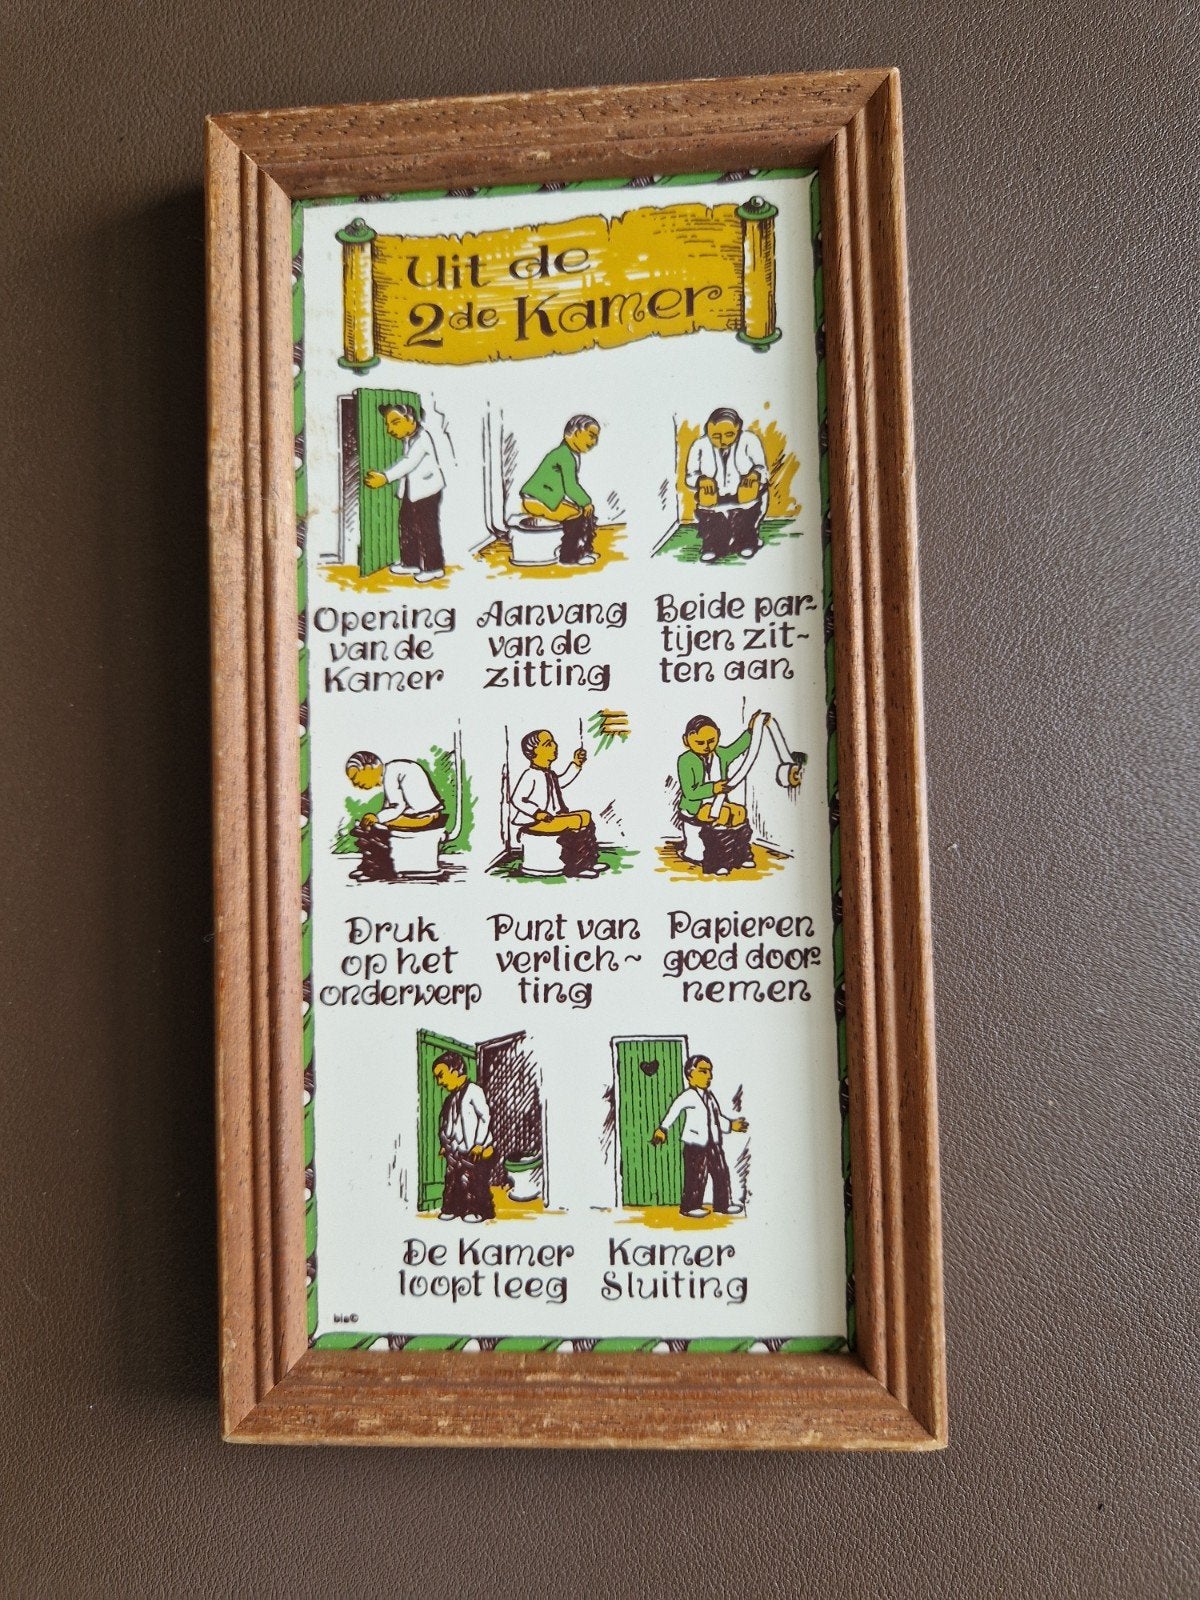 Uit de
2de Kamer
Opening
van de
Kamer
Aanvang
van de
zitting
Beide par-
tijen zit~
ten aan
Druk
op het
onderwerp
Punt van
verlich~
ting
Papieren
goed door-
nemen
De Kamer
loopt leeg
Kamer
Sluiting
bis©